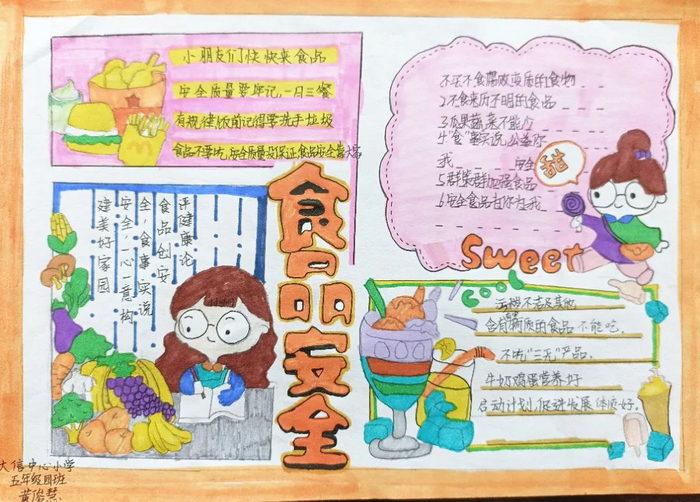 小朋友们快快来食品
安全质量要牢记,一日三餐
有规律饭前记得要洗手垃圾
食品不要吃,安全质量没保证食品安全靠大家
不买不食腐败变质的食物
2不食来历不明的食品
3瓜果蔬菜不能少
4."食"事实说,公益你
我 安全
5群策群力促食品
6安全食品在你在我
甜
Sweet
评健康论
食品创安
全,食事实说
安全,心一意构
建美好家园
食品安全
cool
含有 物质的食品不能吃,
不吃"三无"产品,
牛奶鸡蛋营养好
启动计划,促进发展体质好。
大信中心小学
五年级 班